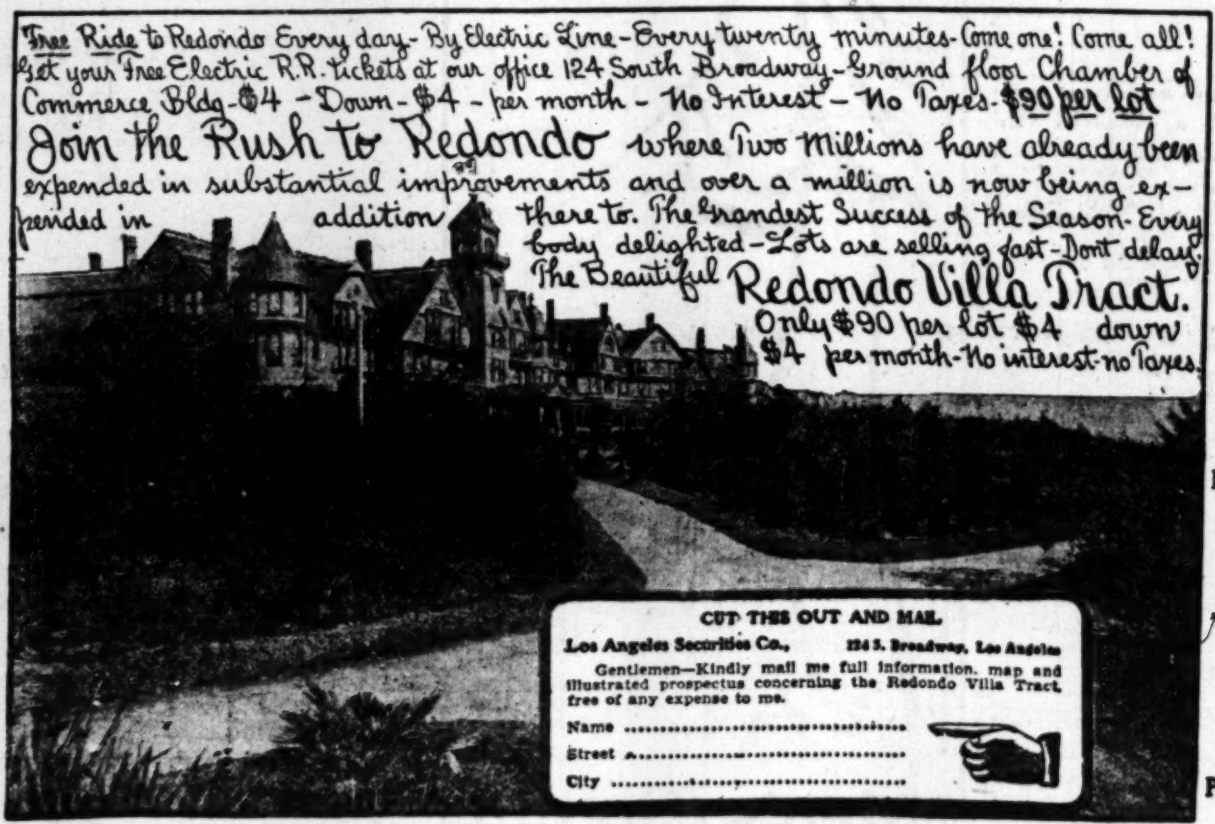 Free Ride to Redondo Every day - By Electric Line - Every twenty minutes - Come one! Come all!
Get your Free Electric R.R. tickets at our office 124 South Broadway - Ground floor Chamber of
Commerce Bldg - $4 - Down - $4 - per month - No Interest - No Taxes - $90 per lot
Join the Rush to Redondo where Two Millions have already been
expended in substantial improvements and over a million is now being ex-
pended in addition there to. The Grandest Success of the Season - Every
body delighted - Lots are selling fast - Dont delay.
The Beautiful Redondo Villa Tract.
Only $90 per lot $4 down
$4 per month - No interest - no Taxes.
CUT THIS OUT AND MAIL
Los Angeles Securities Co., 124 S. Broadway, Los Angeles
Gentlemen—Kindly mail me full information, map and
illustrated prospectus concerning the Redondo Villa Tract,
free of any expense to me.
Name
Street
City